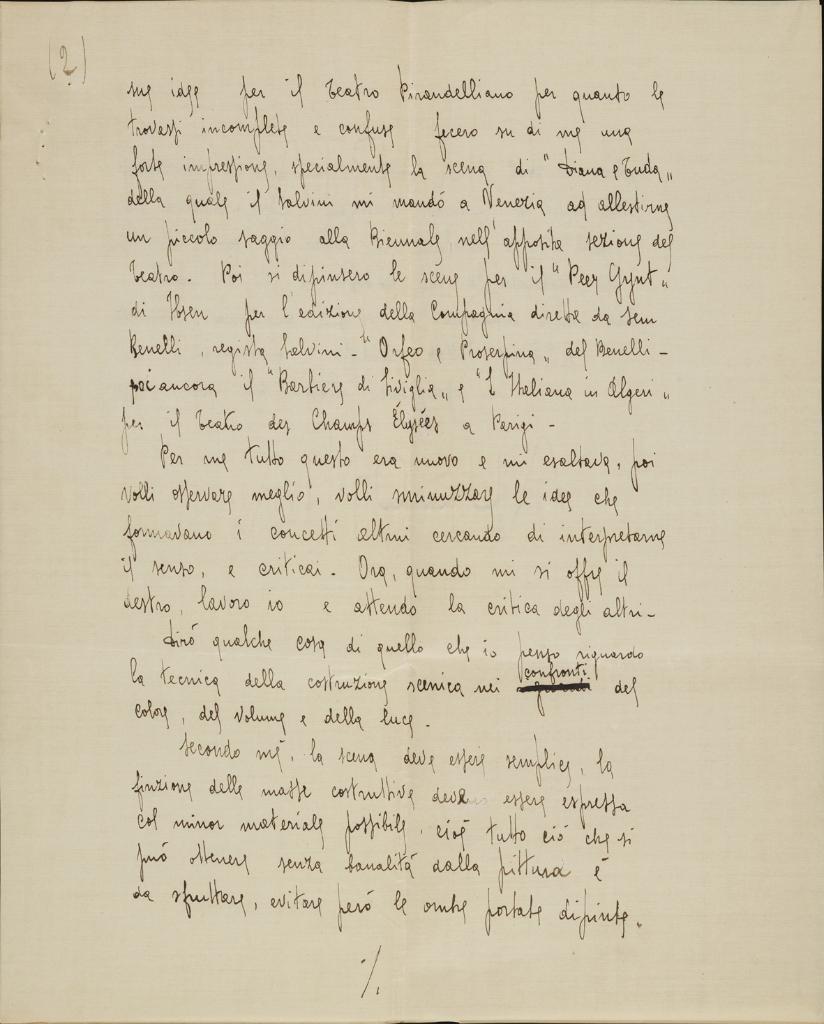 (2)
sue idee per il Teatro Pirandelliano per quanto le
trovassi incomplete e confuse fecero su di me una
forte impressione, specialmente la scena di "Diana e Tuda"
della quale il Salvini mi mandó a Venezia ad allestirne
un piccolo saggio alla Biennale nell'apposita sezione del
Teatro. Poi si dipinsero le scene per il "Peer Gynt"
di Ibsen per l'edizione della Compagnia diretta da Sem
Benelli, regista Salvini - "Orfeo e Proserpina" del Benelli -
poi ancora il "Barbiere di Siviglia" e "L'Italiana in Algeri"
per il Teatro des Champs Élysées a Parigi -
Per me tutto questo era nuovo e mi esaltava, poi
volli osservare meglio, volli sminuzzare le idee che
formavano i concetti altrui cercando di interpretarne
il senso, e criticai. Ora, quando mi si offre il
destro, lavoro io e attendo la critica degli altri -
Diró qualche cosa di quello che io penso riguardo
la tecnica della costruzione scenica nei confronti del
colore, del volume e della luce.
Secondo me, la scena deve essere semplice, la
finzione delle masse costruttive deve essere espressa
col minor materiale possibile, cioé tutto ció che si
puó ottenere senza banalitá dalla pittura é
da sfruttare, evitare peró le ombre portate dipinte.
./.